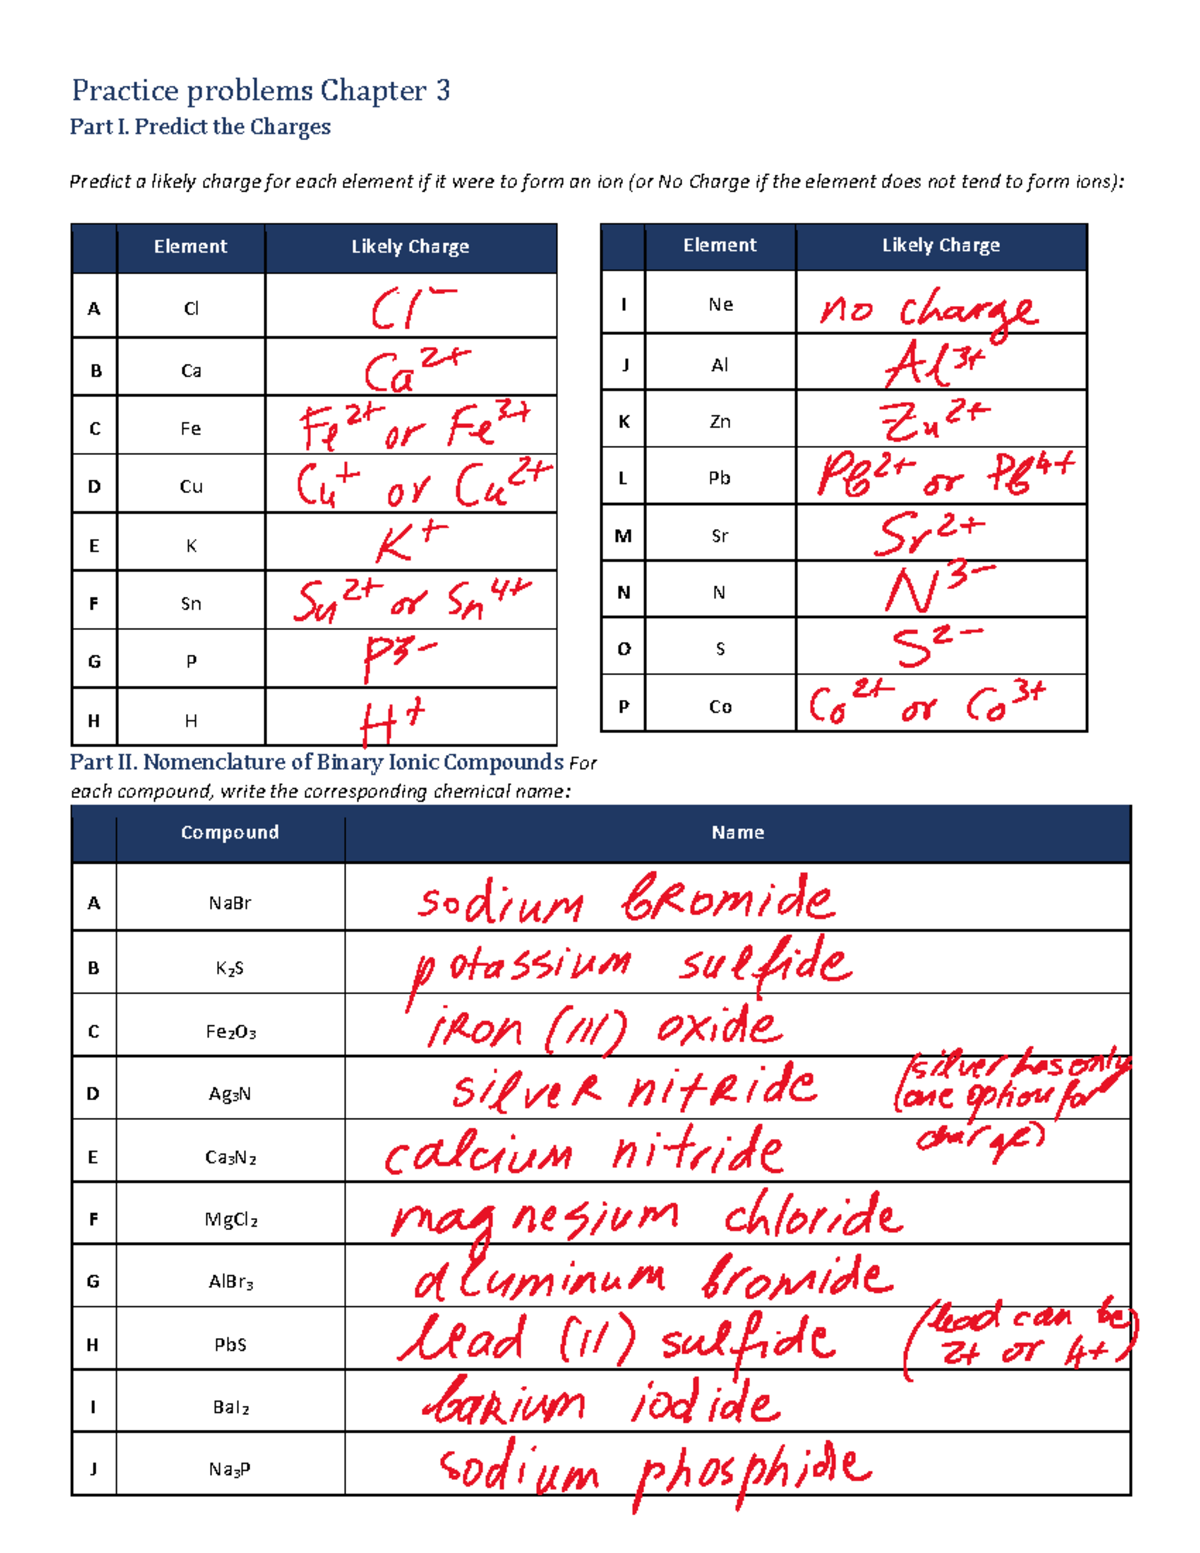 Practice problems Chapter 3
Part I. Predict the Charges
Predict a likely charge for each element if it were to form an ion (or No Charge if the element does not tend to form ions):
Element Likely Charge
A Cl Cl⁻
B Ca Ca²⁺
C Fe Fe²⁺ or Fe³⁺
D Cu Cu⁺ or Cu²⁺
E K K⁺
F Sn Sn²⁺ or Sn⁴⁺
G P P³⁻
H H H⁺
Element Likely Charge
I Ne no charge
J Al Al³⁺
K Zn Zn²⁺
L Pb Pb²⁺ or Pb⁴⁺
M Sr Sr²⁺
N N N³⁻
O S S²⁻
P Co Co²⁺ or Co³⁺
Part II. Nomenclature of Binary Ionic Compounds For
each compound, write the corresponding chemical name:
Compound Name
A NaBr sodium bromide
B K₂S potassium sulfide
C Fe₂O₃ iron (III) oxide
D Ag₃N silver nitride (silver has only
one option for
charge)
E Ca₃N₂ calcium nitride
F MgCl₂ magnesium chloride
G AlBr₃ aluminum bromide
H PbS lead (II) sulfide (lead can be
2+ or 4+)
I BaI₂ barium iodide
J Na₃P sodium phosphide